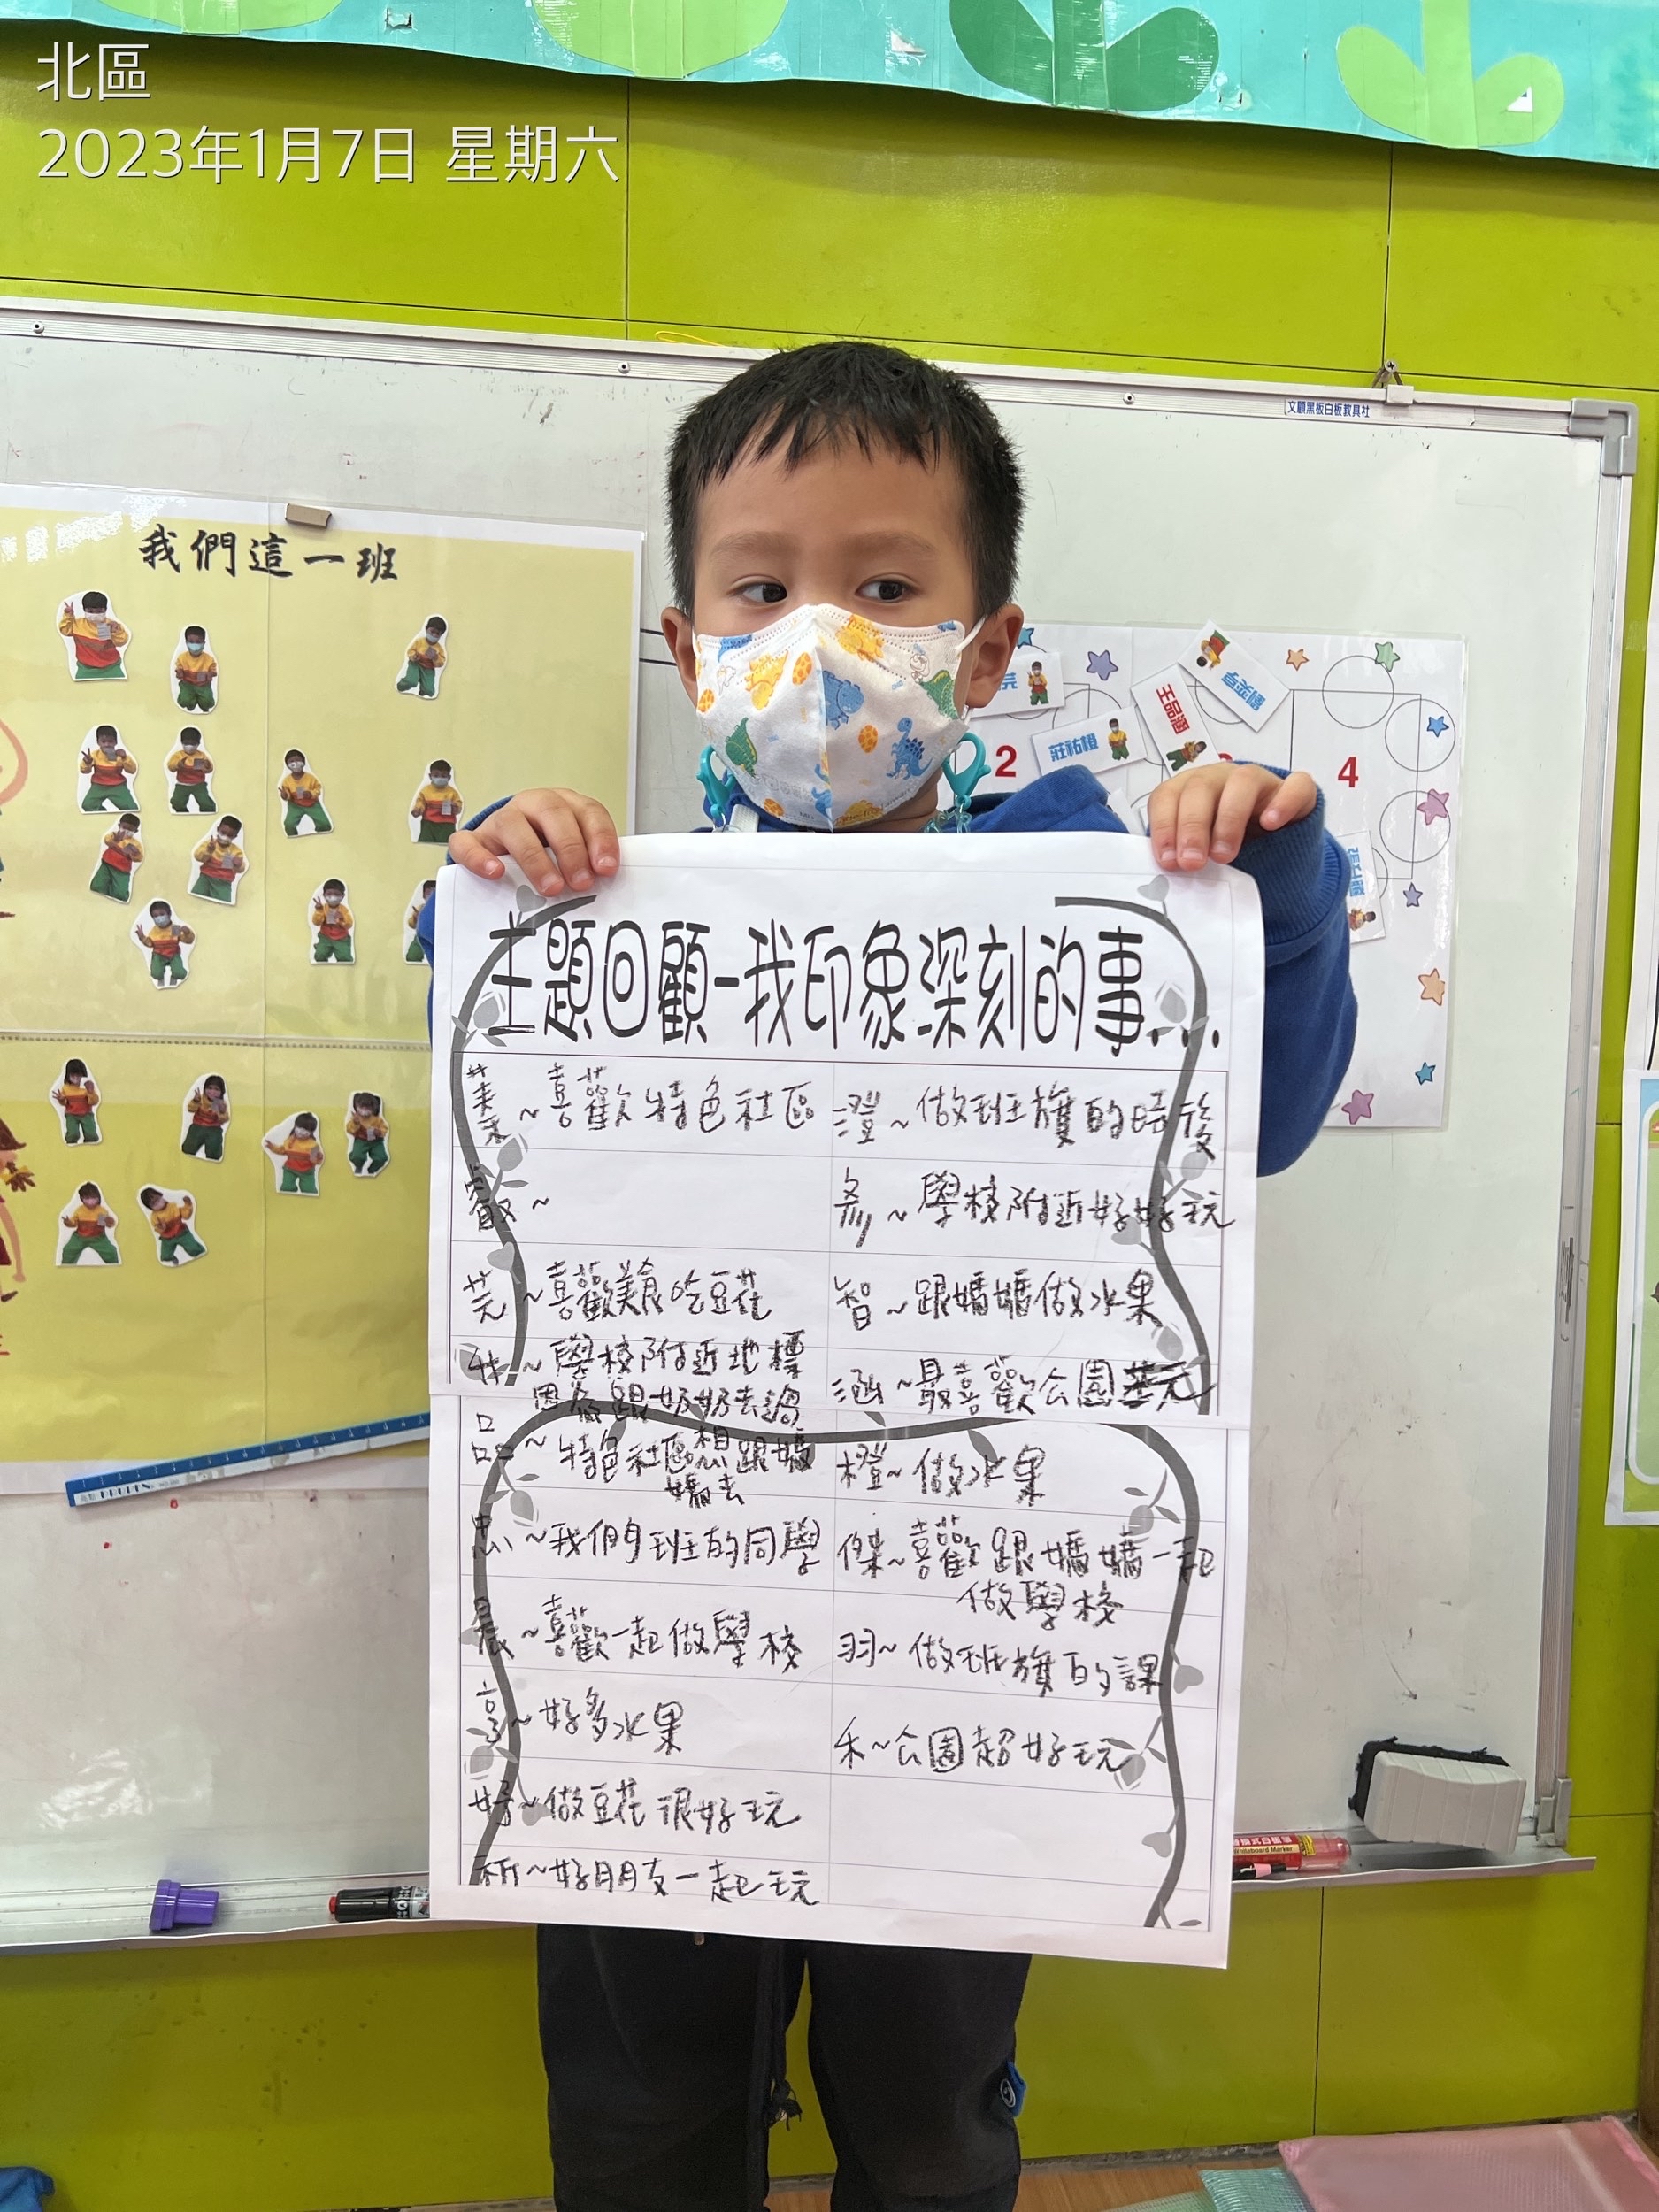 北區
2023年1月7日 星期六
文顧黑板白板教具社
我們這一班
莊祐橙
王品涵
2
4
主題回顧-我印象深刻的事...
蓁~喜歡特色社區
叡~
芫~喜歡美食吃豆花
~學校附近地標
因為跟奶奶去過
品~特色社區想跟媽
媽去
忠~我們班的同學
晨~喜歡一起做學校
享~好多水果
好~做豆花很好玩
祈~好朋友一起玩
澄~做班旗的時後
彣~學校附近好好玩
智~跟媽媽做水果
涵~最喜歡公園芫
橙~做水果
傑~喜歡跟媽媽一起
做學校
羽~做班旗的課
禾~公園超好玩
Whiteboard Marker